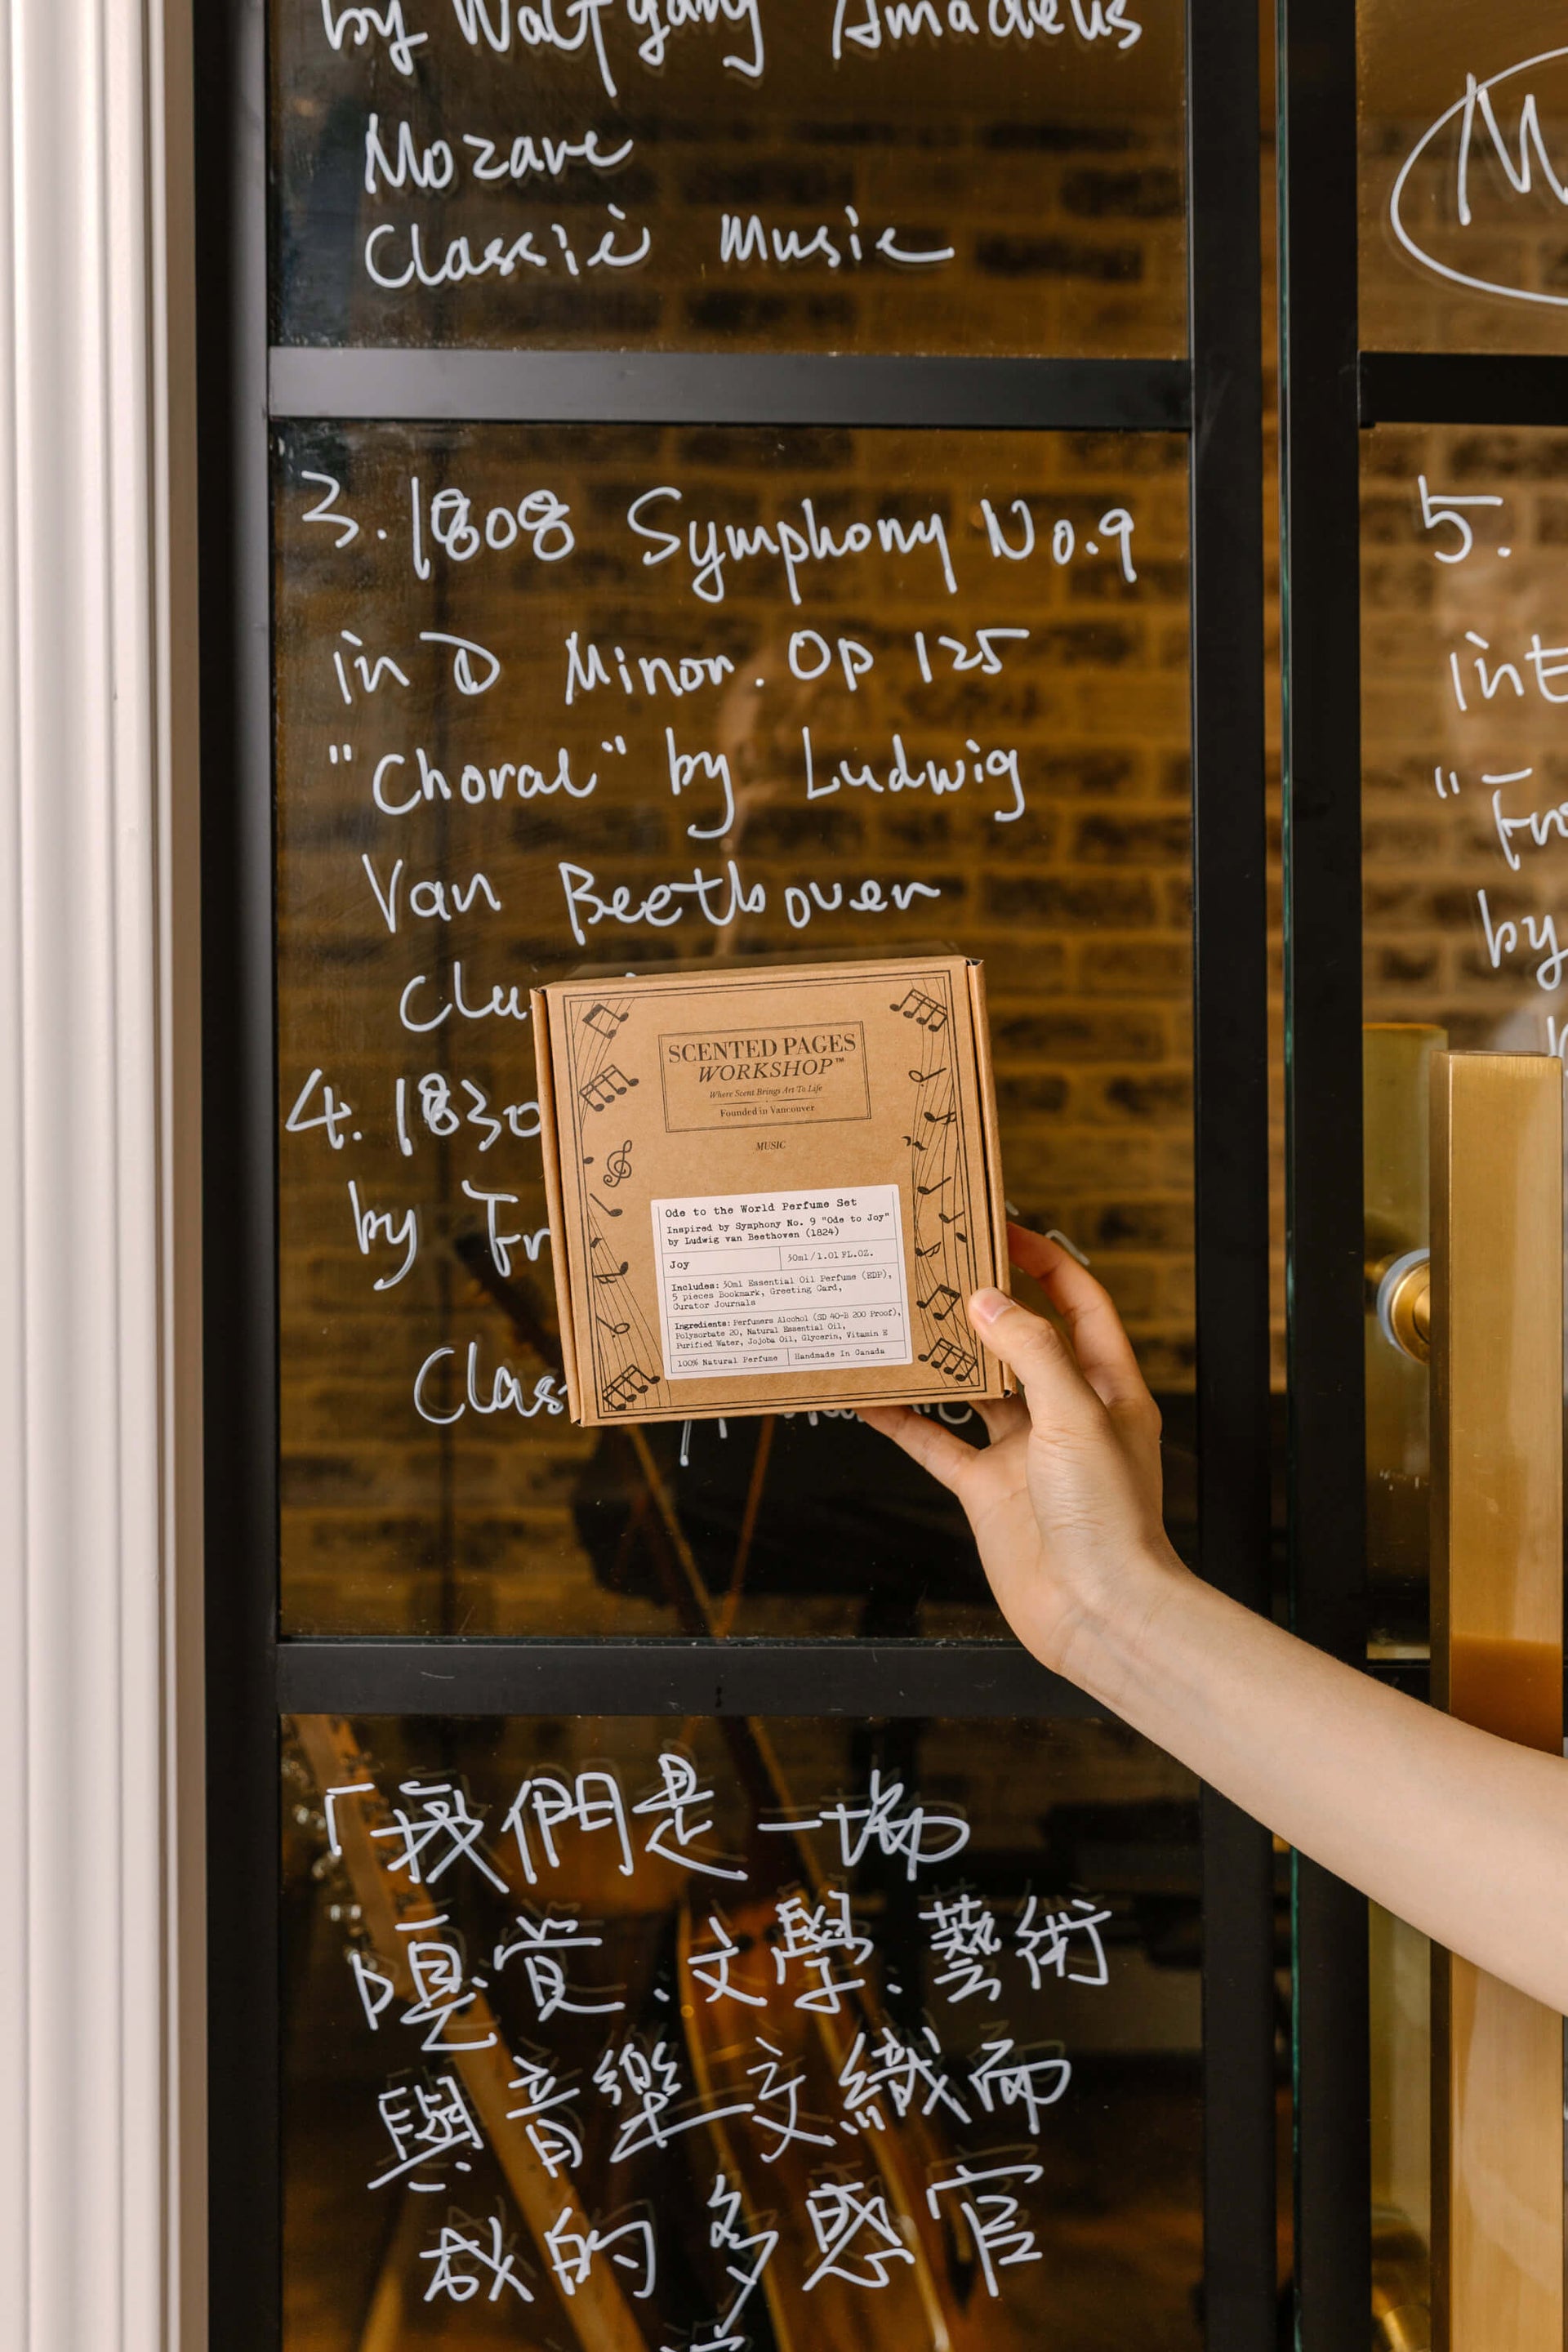 by Wolfgang Amadeus
Mozart
Classic Music
3. 1808 Symphony No.9
in D Minor. Op 125
"Choral" by Ludwig
Van Beethoven
Cla
4. 1830
by Fr
Clas
5.
int
by
SCENTED PAGES
WORKSHOP™
Where Scent Brings Art To Life
Founded in Vancouver
MUSIC
Ode to the World Perfume Set
Inspired by Symphony No. 9 "Ode to Joy"
by Ludwig van Beethoven (1824)
Joy 30ml/1.01 FL.OZ.
Includes: 30ml Essential Oil Perfume (EDP),
5 pieces Bookmark, Greeting Card,
Curator Journals
Ingredients: Perfumers Alcohol (SD 40-B 200 Proof),
Polysorbate 20, Natural Essential Oil,
Purified Water, Jojoba Oil, Glycerin, Vitamin E
100% Natural Perfume Handmade In Canada
「我們是一場
嗅覺.文學.藝術
與音樂交織而
成的多感官